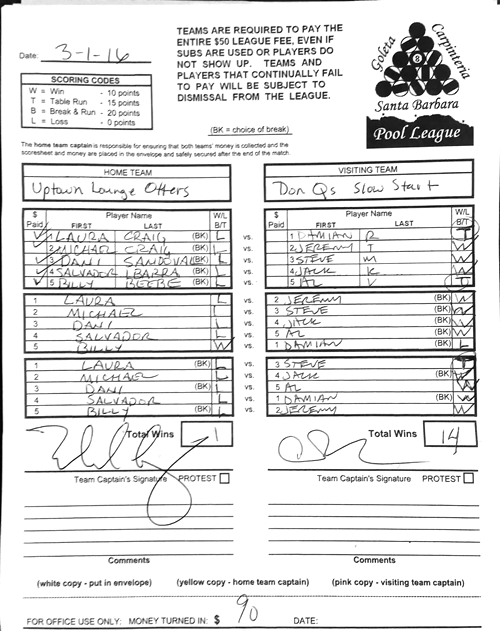 Date: 3-1-16
TEAMS ARE REQUIRED TO PAY THE
ENTIRE $50 LEAGUE FEE, EVEN IF
SUBS ARE USED OR PLAYERS DO
NOT SHOW UP. TEAMS AND
PLAYERS THAT CONTINUALLY FAIL
TO PAY WILL BE SUBJECT TO
DISMISSAL FROM THE LEAGUE.
Goleta Carpinteria
8
Santa Barbara
Pool League
SCORING CODES
W = Win - 10 points
T = Table Run - 15 points
B = Break & Run - 20 points
L = Loss - 0 points
(BK = choice of break)
The home team captain is responsible for ensuring that both teams' money is collected and the
scoresheet and money are placed in the envelope and safely secured after the end of the match.
HOME TEAM VISITING TEAM
Uptown Lounge Otters Don Qs Slow Start
$ Paid Player Name FIRST LAST W/L B/T $ Paid Player Name FIRST LAST W/L B/T
1 LAURA CRAIG (BK) L vs. 1 DAMIAN R T
2 MICHAEL CRAIG (BK) L vs. 2 JEREMY T W
3 DANI SANDOVAL (BK) L vs. 3 STEVE M W
4 SALVADOR IBARRA (BK) L vs. 4 JACK K W
5 BILLY BEEBE (BK) L vs. 5 AL V T
1 LAURA L vs. 2 JEREMY (BK) W
2 MICHAEL L vs. 3 STEVE (BK) W
3 DANI L vs. 4 JACK (BK) W
4 SALVADOR L vs. 5 AL (BK) W
5 BILLY W vs. 1 DAMIAN (BK) L
1 LAURA (BK) L vs. 3 STEVE T
2 MICHAEL L vs. 4 JACK (BK) W
3 DANI (BK) L vs. 5 AL W
4 SALVADOR L vs. 1 DAMIAN (BK) W
5 BILLY (BK) L vs. 2 JEREMY W
Total Wins 1 Total Wins 14
Team Captain's Signature PROTEST Team Captain's Signature PROTEST
Comments Comments
(white copy - put in envelope) (yellow copy - home team captain) (pink copy - visiting team captain)
FOR OFFICE USE ONLY: MONEY TURNED IN: $ 90 DATE: